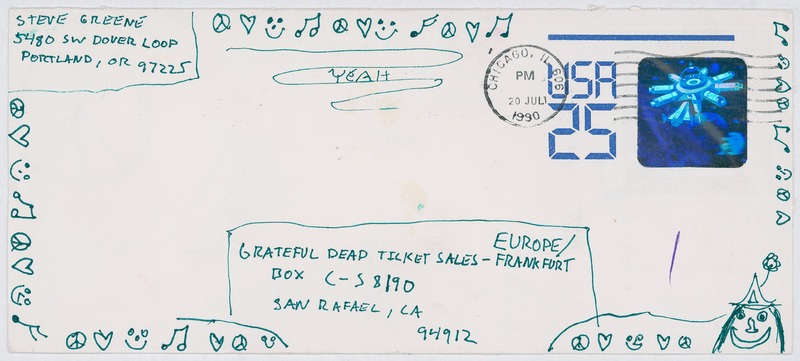 STEVE GREENE
5480 SW DOVER LOOP
PORTLAND, OR 97225
YEAH
CHICAGO, IL 606
PM
20 JUL
1990
USA
25
EUROPE/
GRATEFUL DEAD TICKET SALES - FRANKFURT
BOX C-S 8190
SAN RAFAEL, CA
94912